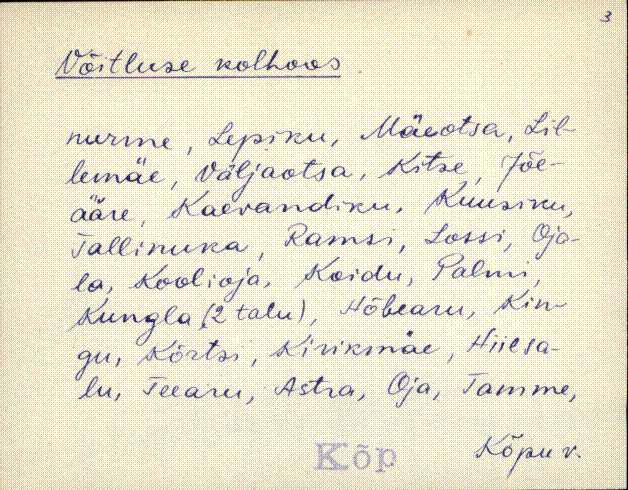 3
Võitluse kolhoos
nurme, Lepiku, Mäeotsa, Lil-
lemäe, Väljaotsa, Kitse, Jõe-
ääre, Kaevandiku, Kuusiku,
Tallinuka, Ramsi, Lossi, Oja-
la, Koolioja, Koidu, Palmi,
Kungla (2 talu), Hõbearu, Kin-
gu, Kõrtsi, Kirikmäe, Hiiesa-
lu, Teearu, Astra, Oja, Tamme,
Kõp
Kõpu v.